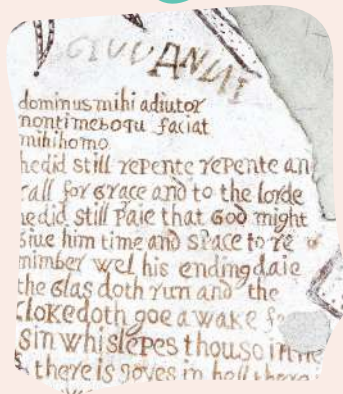 dominus mihi adiutor
non timebo qu faciat
mihi homo
he did still repente repente an
call for grace and to the lorde
he did still Paie that God might
Giue him time and space to re
mimber wel his ending daie
the Glas doth run and the
Cloke doth goe awake f
sin whi slepes thou so in
there is Joyes in hell there